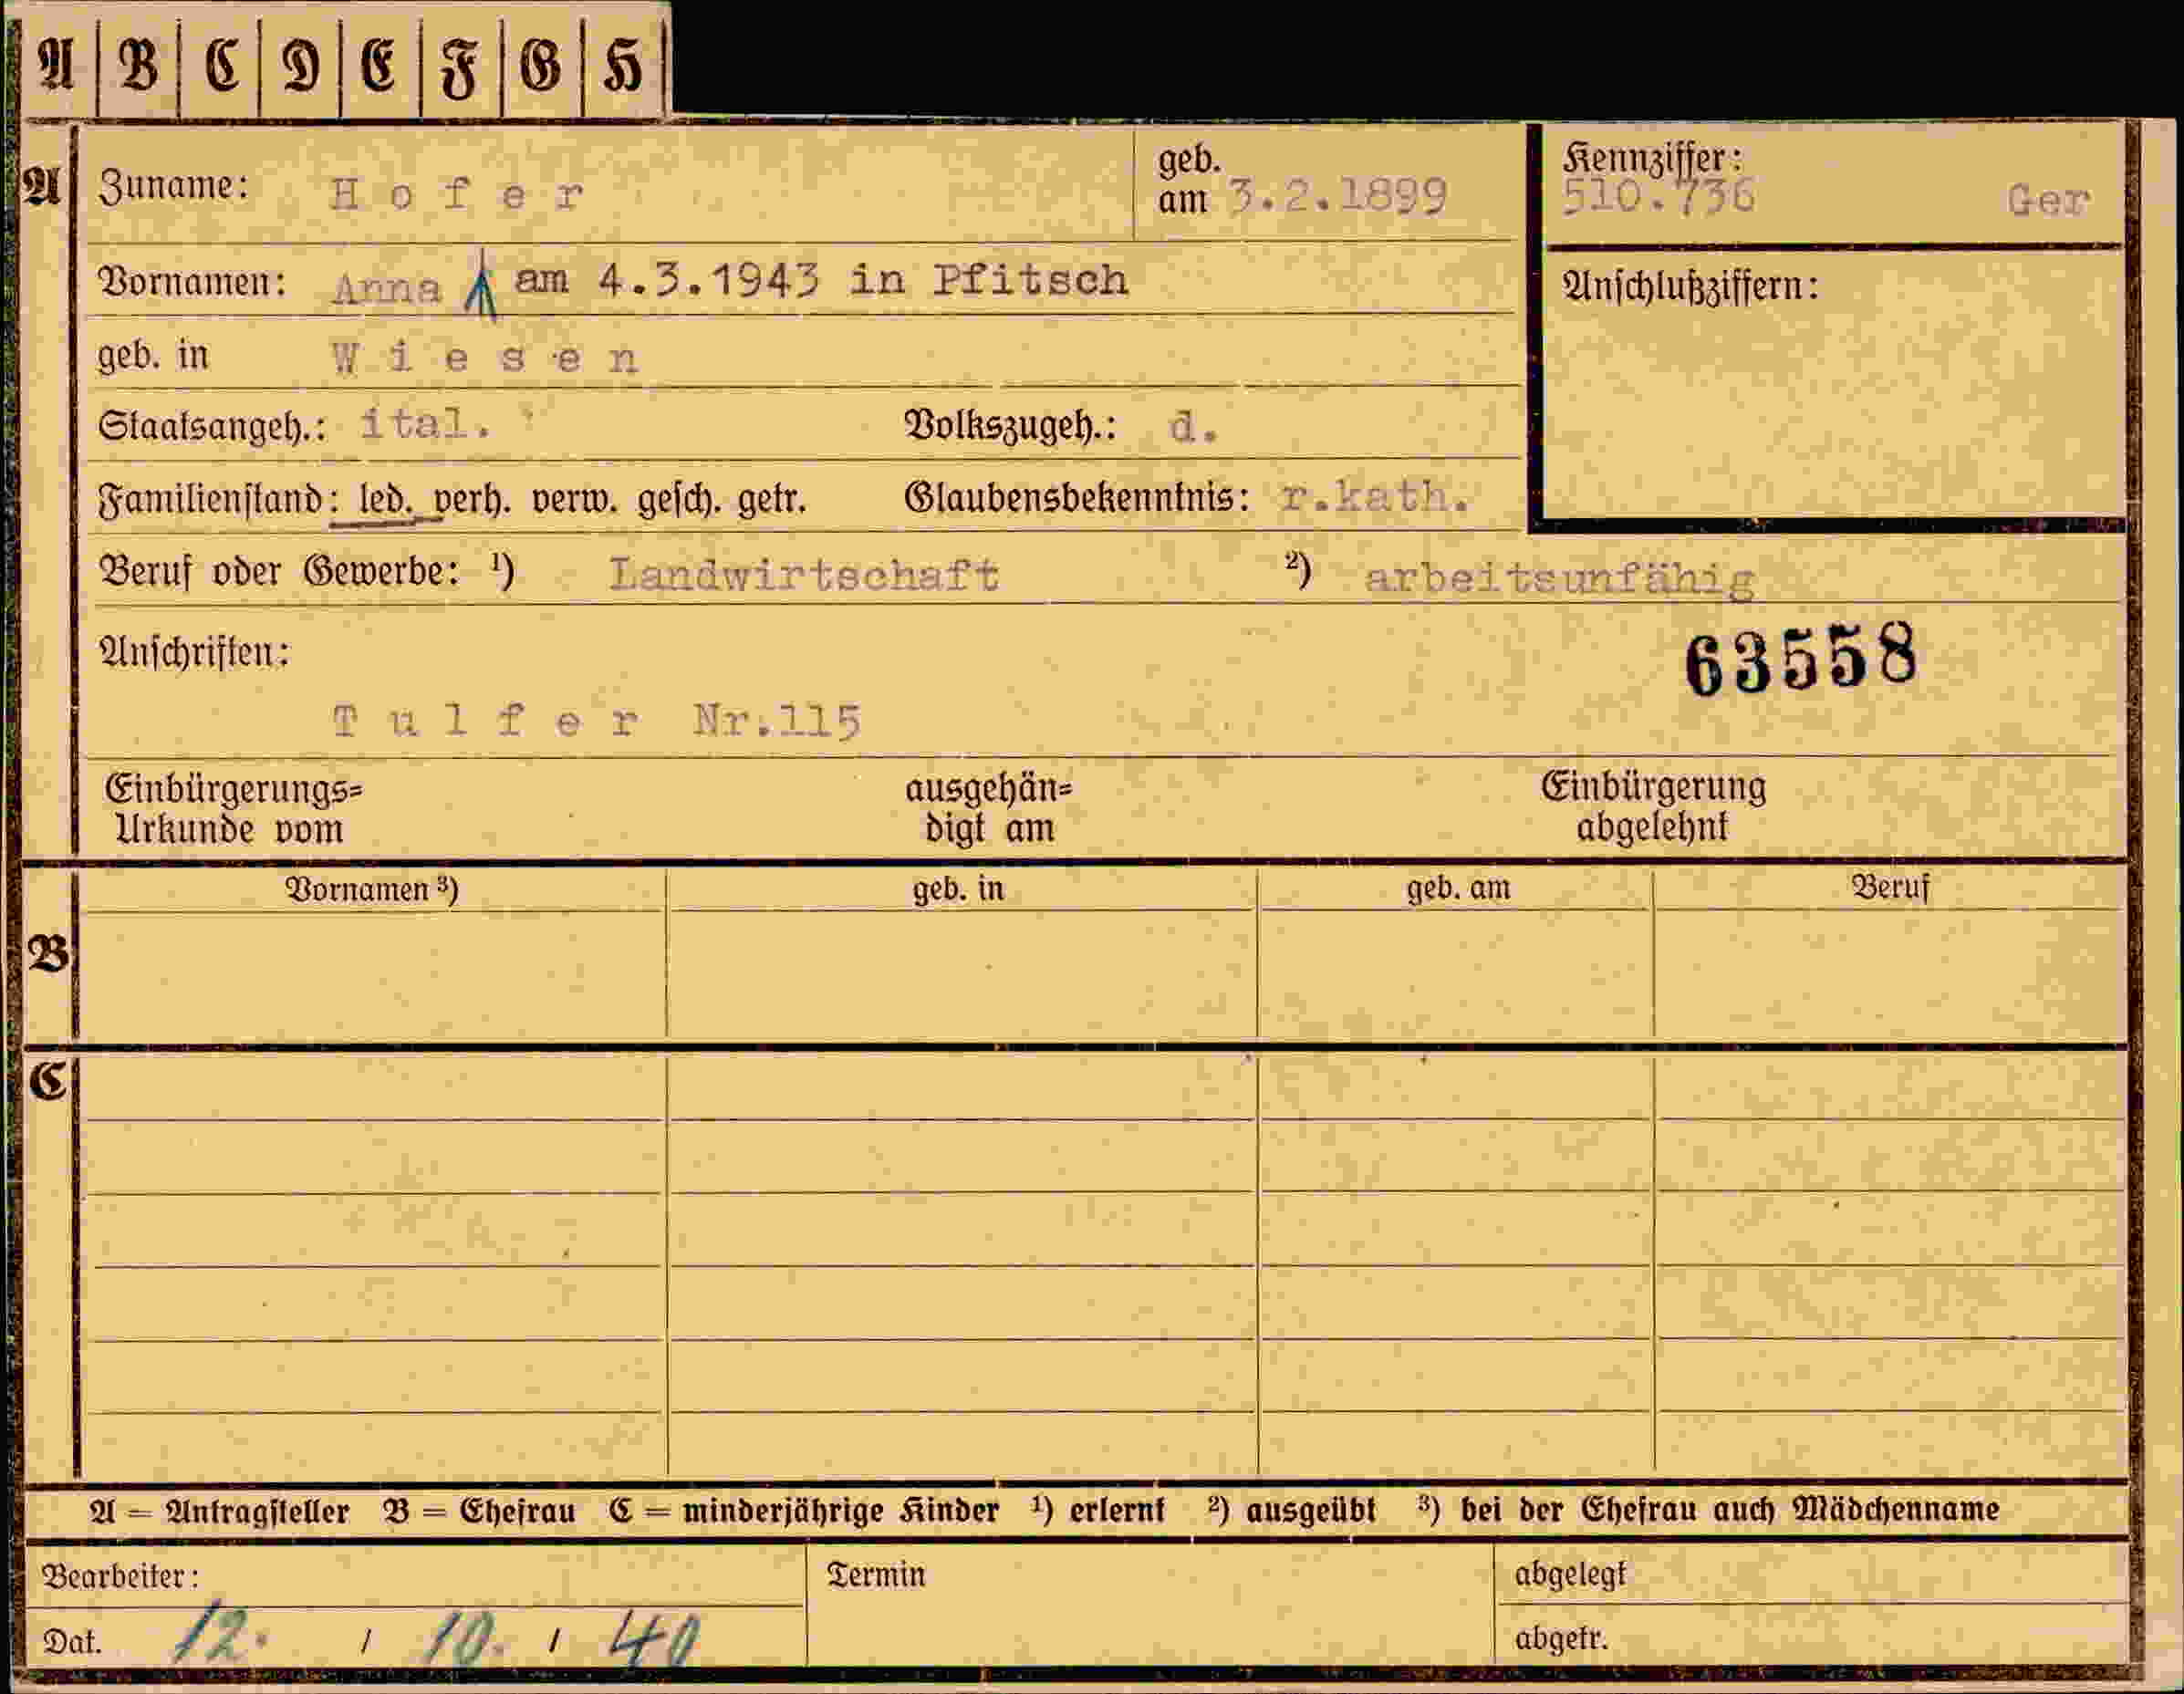 A B C D E F G H
A Zuname: Hofer geb. am 3.2.1899 Kennziffer: 510.736 Ger
Vornamen: Anna am 4.3.1943 in Pfitsch Anschlußziffern:
geb. in Wiesen
Staatsangeh.: ital. Volkszugeh.: d.
Familienstand: led. verh. verw. gesch. getr. Glaubensbekenntnis: r.kath.
Beruf oder Gewerbe: ¹) Landwirtschaft ²) arbeitsunfähig
Anschriften: 63558
Tulfer Nr.115
Einbürgerungs= ausgehän= Einbürgerung
Urkunde vom digt am abgelehnt
Vornamen ³) geb. in geb. am Beruf
B
C
A = Antragsteller B = Ehefrau C = minderjährige Kinder ¹) erlernt ²) ausgeübt ³) bei der Ehefrau auch Mädchenname
Bearbeiter: Termin abgelegt
Dat. 12. / 10. / 40 abgetr.